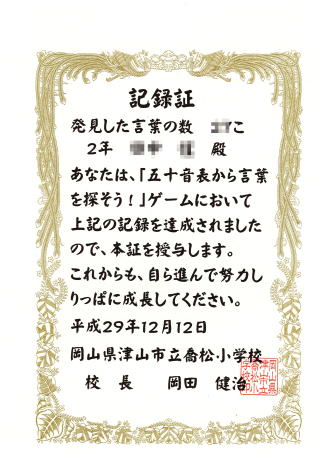 記録証
発見した言葉の数 こ
2年 殿
あなたは、「五十音表から言葉
を探そう！」ゲームにおいて
上記の記録を達成されました
ので、本証を授与します。
これからも、自ら進んで努力し
りっぱに成長してください。
平成29年12月12日
岡山県津山市立喬松小学校
校 長 岡田 健治